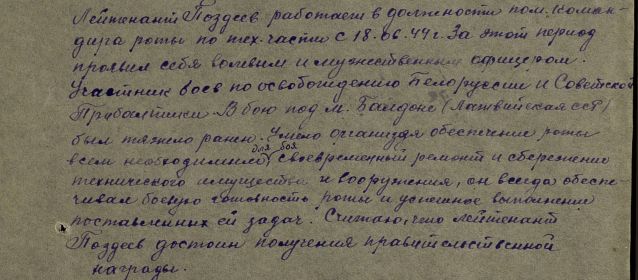 Лейтенант Поздеев работает в должности пом. коман-
дира роты по тех. части с 18.06.44г. За этот период
проявил себя волевым и мужественным офицером.
Участник боев по освобождению Белоруссии и Советской
Прибалтики. В бою под м. Балдоне (Латвийская сст)
был тяжело ранен. Умело организуя обеспечение роты
всем необходимым для боя, своевременный ремонт и сбережение
технического имущества и вооружения, он всегда обеспе-
чивал боевую готовность роты и успешное выполнение
поставленных ей задач. Считаю, что лейтенант
Поздеев достоин получения правительственной
награды.